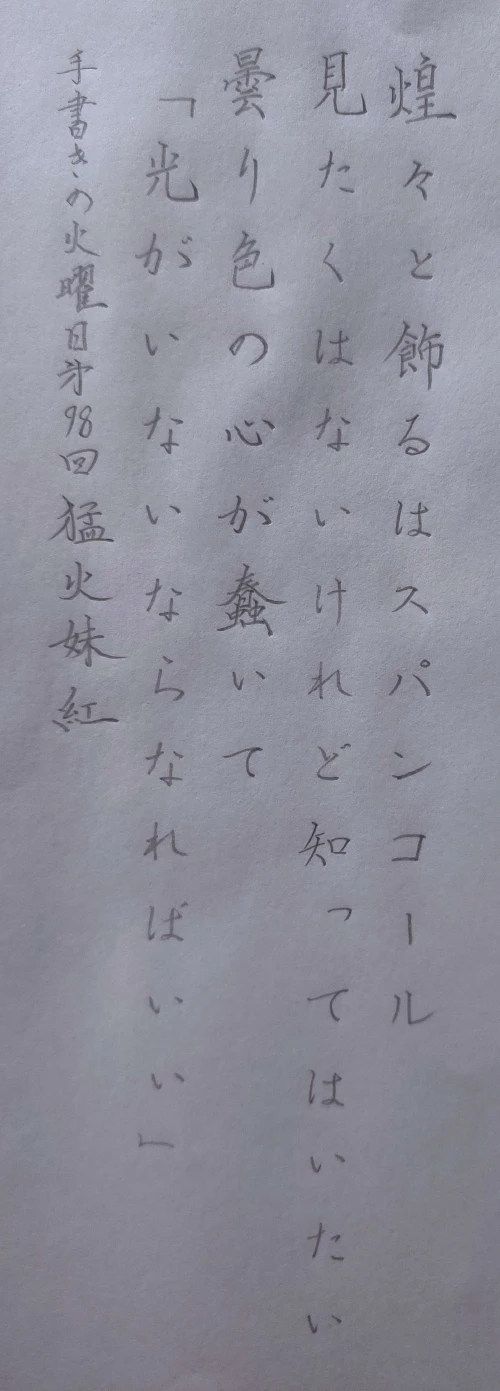 煌々と飾るはスパンコール
見たくはないけれど知ってはいたい
曇り色の心が蠢いて
「光がいないならなればいい」
手書きの火曜日第98回猛火妹紅